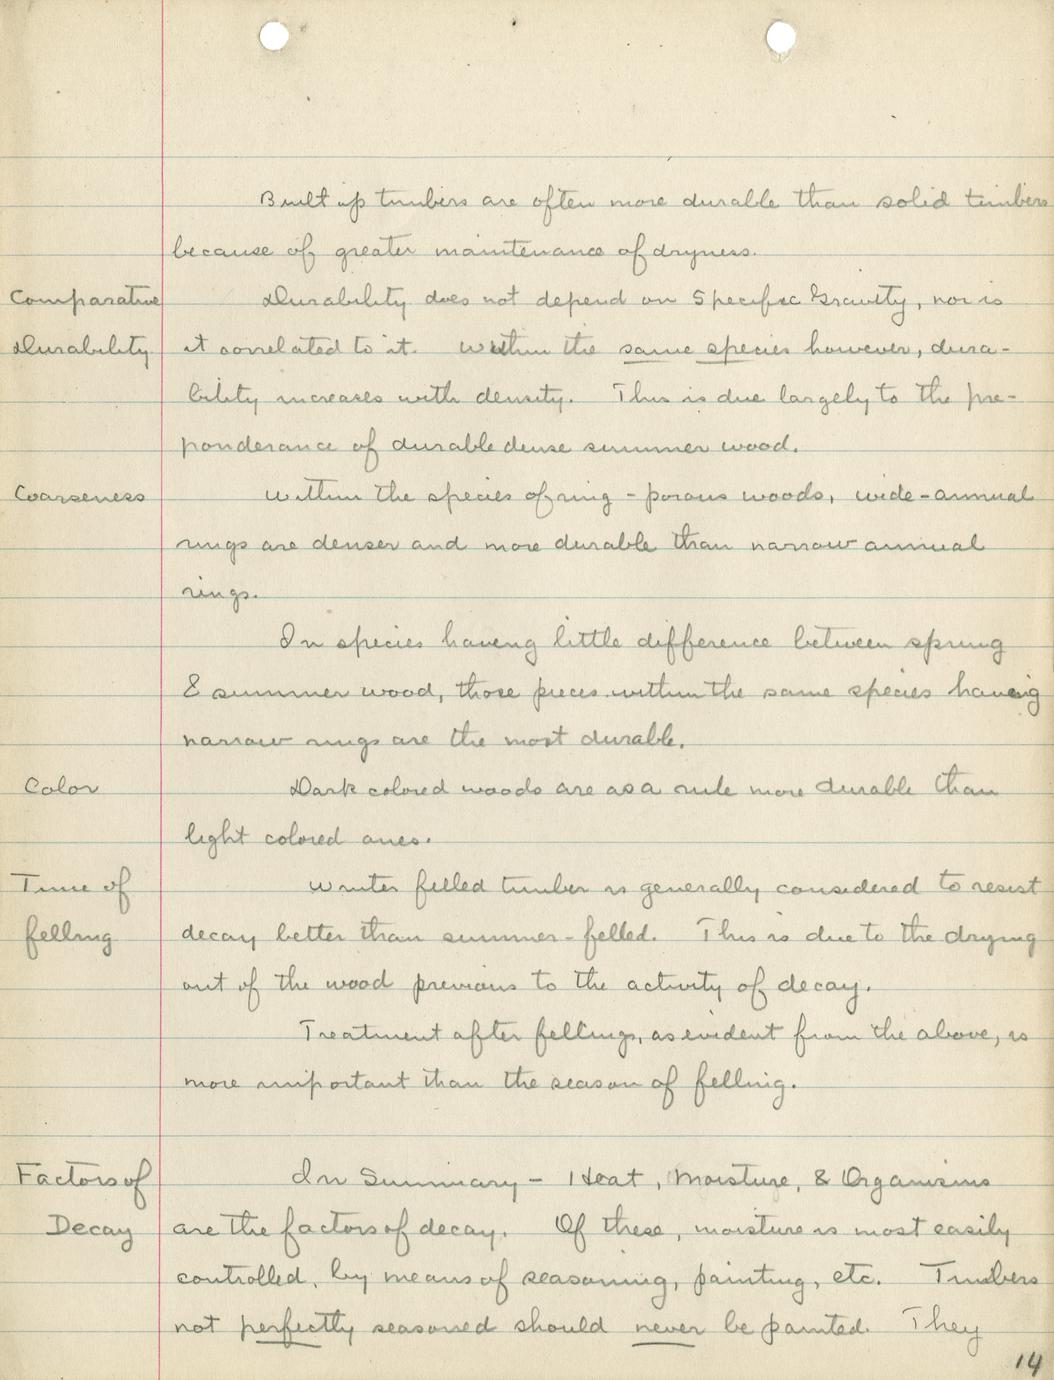 Built up timbers are often more durable than solid timbers
because of greater maintenance of dryness.
Comparative Durability does not depend on Specific Gravity, nor is
Durability it correlated to it. Within the same species however, dura-
bility increases with density. This is due largely to the pre-
ponderance of durable dense summer wood.
Coarseness Within the species of ring-porous woods, wide-annual
rings are denser and more durable than narrow annual
rings.
In species having little difference between spring
& summer wood, those pieces within the same species having
narrow rings are the most durable.
Color Dark colored woods are as a rule more durable than
light colored ones.
Time of Winter felled timber is generally considered to resist
felling decay better than summer-felled. This is due to the drying
out of the wood previous to the activity of decay.
Treatment after fellings, as evident from the above, is
more important than the season of felling.
Factors of In Summary - Heat, Moisture, & Organisms
Decay are the factors of decay. Of these, moisture is most easily
controlled, by means of seasoning, painting, etc. Timbers
not perfectly seasoned should never be painted. They
14